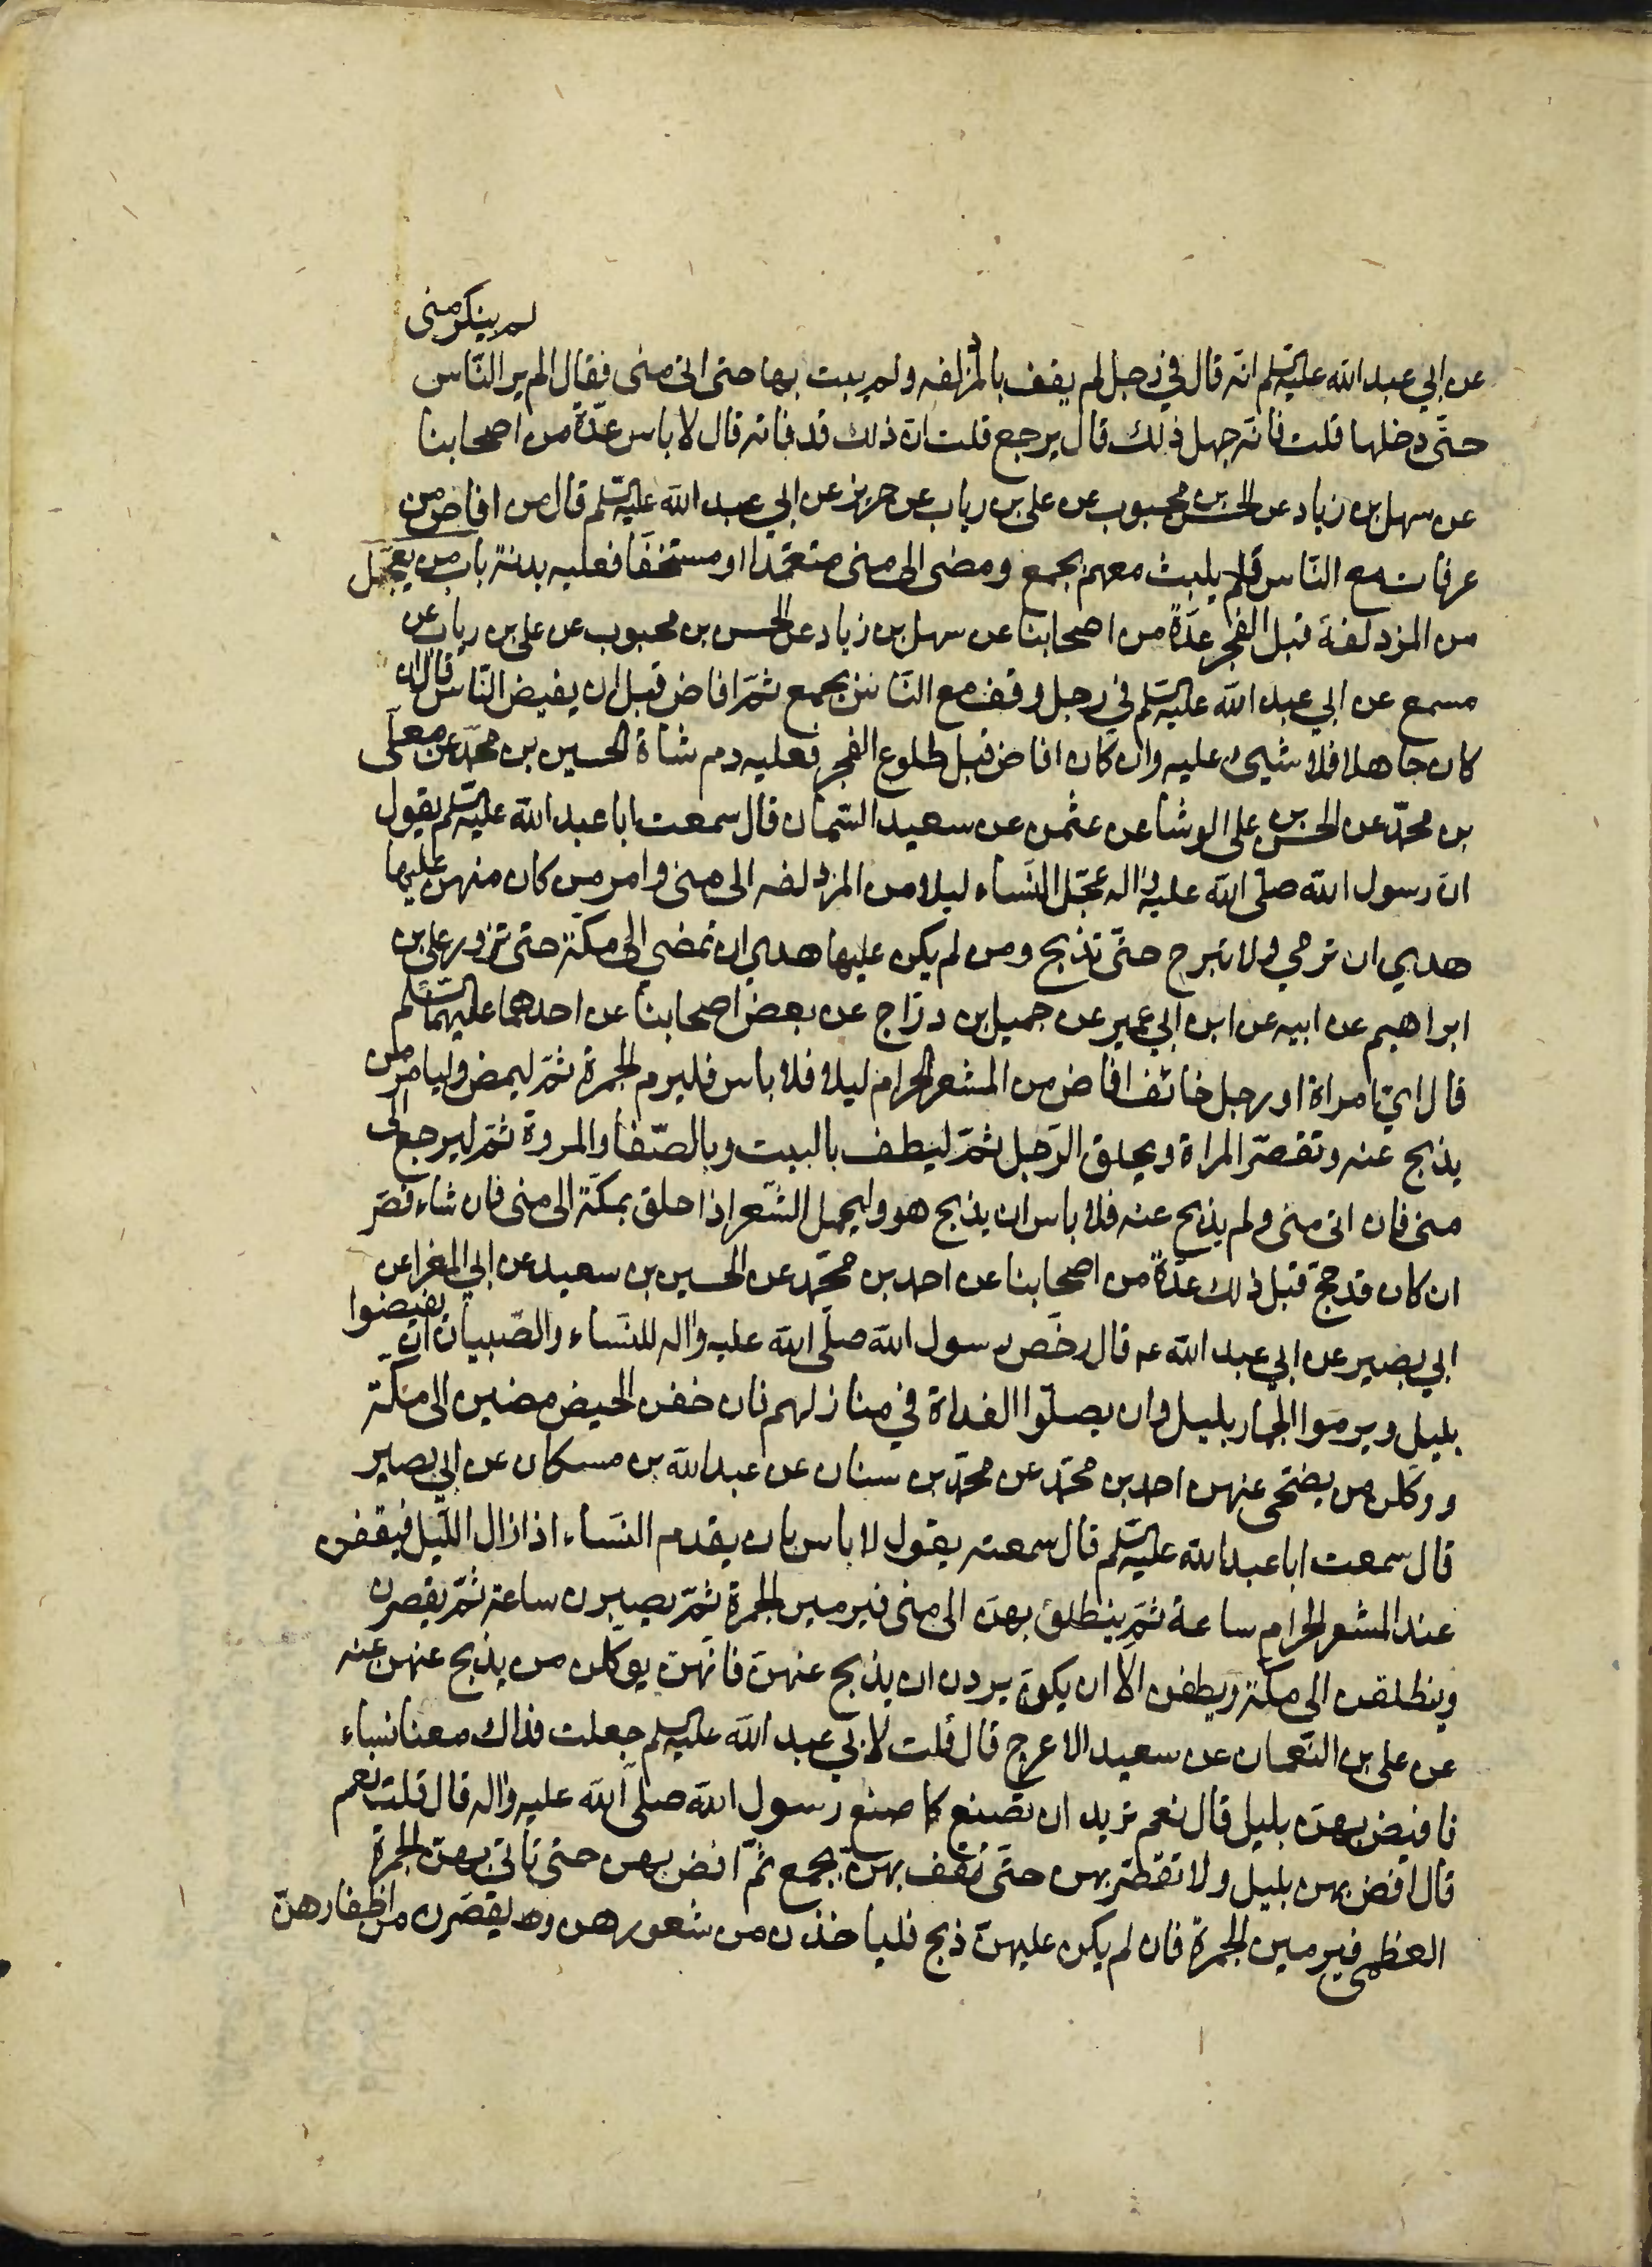 لم ينكر منى
عن ابي عبد الله عليه السلم انه قال في رجل لم يقف بالمزدلفه ولم يبت بها حتى اتى منى فقال الم ير الناس
حتّى دخلها قلت فانّه جهل ذلك قال يرجع قلت انّ ذلك قد فاته قال لا باس عدّة من اصحابنا
عن سهل بن زياد عن الحسن بن محبوب عن علي بن رياب عن حريز عن ابي عبد الله عليه السلم قال من افاض من
عرفات مع النّاس فلم يلبث معهم بجمع ومضى الى منى متعمّدا او مستخفّا فعليه بدنة باب من يعجّل
من المزدلفة قبل الفجر عدّة من اصحابنا عن سهل بن زياد عن الحسن بن محبوب عن علي بن رياب عن
مسمع عن ابي عبد الله عليه السلم في رجل وقف مع النّاس بجمع ثمّ افاض قبل ان يفيض النّاس قال ان
كان جاهلا فلا شيىء عليه وان كان افاض قبل طلوع الفجر فعليه دم شاة الحسين بن محمّد عن معلّى
بن محمّد عن الحسن بن علي الوشا عن عثمن عن سعيد السّمان قال سمعت ابا عبد الله عليه السلم يقول
انّ رسول الله صلّى الله عليه واله عجّل النّساء ليلا من المزدلفه الى منى وامر من كان منهن عليها
هدي ان ترمي ولا تبرح حتّى تذبح ومن لم يكن عليها هدي ان تمضي الى مكّة حتى تزور علي بن
ابراهيم عن ابيه عن ابن ابي عمير عن جميل بن درّاج عن بعض اصحابنا عن احدهما عليهما السلم
قال ايّ امراة او رجل خائف افاض من المشعر الحرام ليلا فلا باس فليرم الجمرة ثمّ ليمض وليامر من
يذبح عنه وتقصّر المراة ويحلق الرّجل ثمّ ليطف بالبيت وبالصّفا والمروة ثمّ ليرجع الى
منى فان اتى منى ولم يذبح عنه فلا باس ان يذبح هو وليحمل الشّعر اذا حلق بمكّة الى منى فان شاء قصّر
ان كان قد حجّ قبل ذلك عدّة من اصحابنا عن احمد بن محمّد عن الحسين بن سعيد عن ابي المغرا عن
ابي بصير عن ابي عبد الله عه قال رخّص رسول الله صلّى الله عليه واله للنّساء والصّبيان ان يفيضوا
بليل ويرموا الجمار بليل وان يصلّوا الغداة في منازلهم فان خفن الحيض مضين الى مكّة
ووكلن من يضحّى عنهن احمد بن محمّد عن محمّد بن سنان عن عبد الله بن مسكان عن ابي بصير
قال سمعت ابا عبد الله عليه السلم قال سمعته يقول لا باس بان يقدم النّساء اذا زال اللّيل فيقفن
عند المشعر الحرام ساعة ثمّ ينطلق بهنّ الى منى فيرمين الجمرة ثمّ يصبرن ساعة ثمّ يقصرن
وينطلقن الى مكّة ويطفن الّا ان يكونّ يردن ان يذبح عنهنّ فانّهنّ يوكّلن من يذبح عنهن عنه
عن علي بن النّعمان عن سعيد الاعرج قال قلت لابي عبد الله عليه السلم جعلت فداك معنا نساء
فافيض بهنّ بليل قال نعم تريد ان تصنع كما صنع رسول الله صلّى الله عليه واله قال قلت نعم
قال افض بهن بليل ولا تفض بهن حتّى تقف بهنّ بجمع ثمّ افض بهن حتى تاتى بهنّ الجمرة
العظمى فيرمين الجمرة فان لم يكن عليهنّ ذبح فلياخذن من شعورهن و يقصّرن من اظفارهنّ